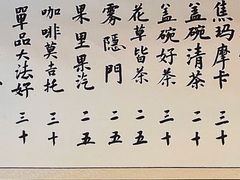 焦瑪摩卡 三十
蓋碗清茶 二十
蓋碗好茶 三十
花草皆茶 二五
霧隱門 二五
果里果汽 二五
咖啡莫吉托 三十
單品大法好 三十